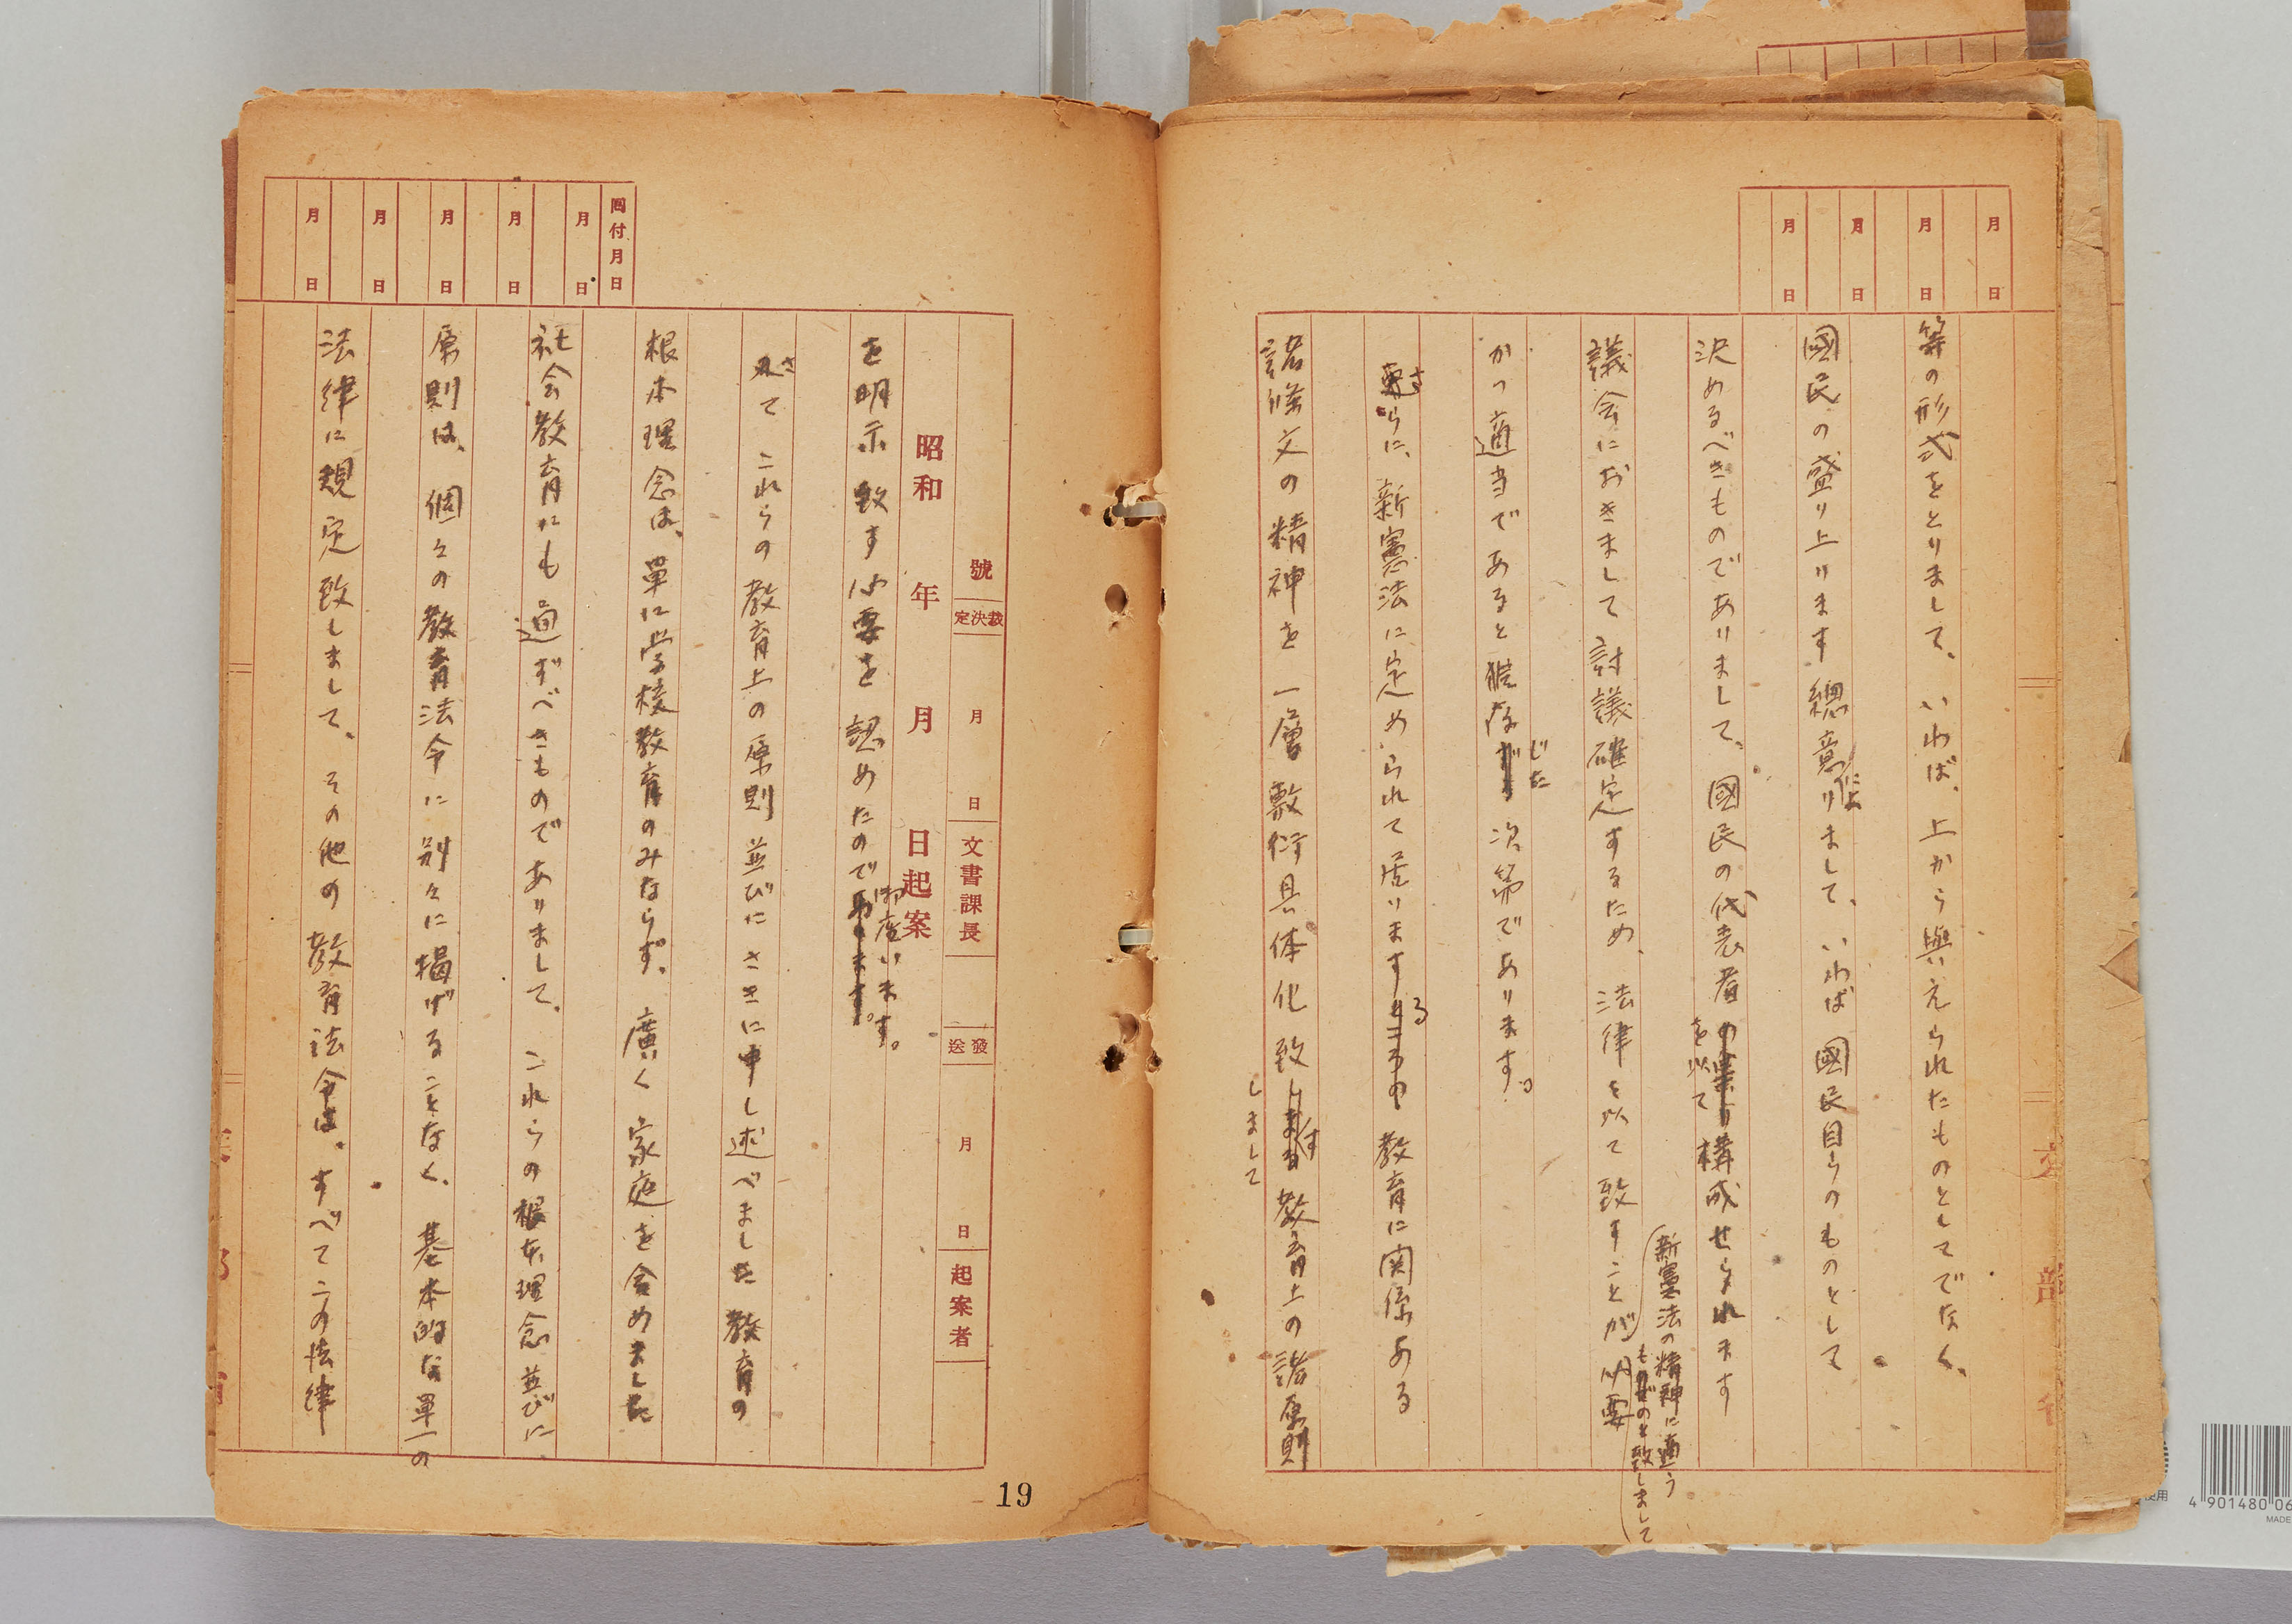 月 日
月 日
月 日
月 日
等の形式をとりまして、いわば、上から與えられたものとしてでなく、
國民の盛り上ります總意によりまして、いわば國民自らのものとして
決めるべきものでありまして、國民の代表者を以て構成せられます
新憲法の精神に適う
ものと致しまして
議会におきまして討議確定するため、法律を以て致すことが必要
かつ適当であると信じた次第であります。
さらに、新憲法に定められて居ります教育に関係ある
諸條文の精神を一層敷衍具体化致しまして教育上の諸原則
文部省
號
裁決定
月 日
文書課長
發送
月 日
起案者
昭和 年 月 日起案
を明示致す必要を認めたので御座います。
さて これらの教育上の原則並びにさきに申し述べました教育の
根本理念は、單に学校教育のみならず、廣く家庭を含めました
社会教育にも通ずべきものでありまして、これらの根本理念並びに
原則は、個々の教育法令に別々に掲げることなく、基本的な單一の
法律に規定致しまして、その他の教育法令は、すべてこの法律
回付月日
月 日
月 日
月 日
月 日
月 日
19
4 901480 06
MADE
使用